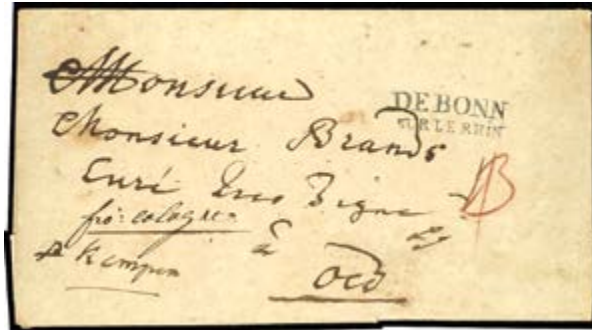 Monsieur
DE BONN
SUR LE RHIN
Monsieur Brands
Curé tres Digne
fro: cologne
à
Kempen
Oed